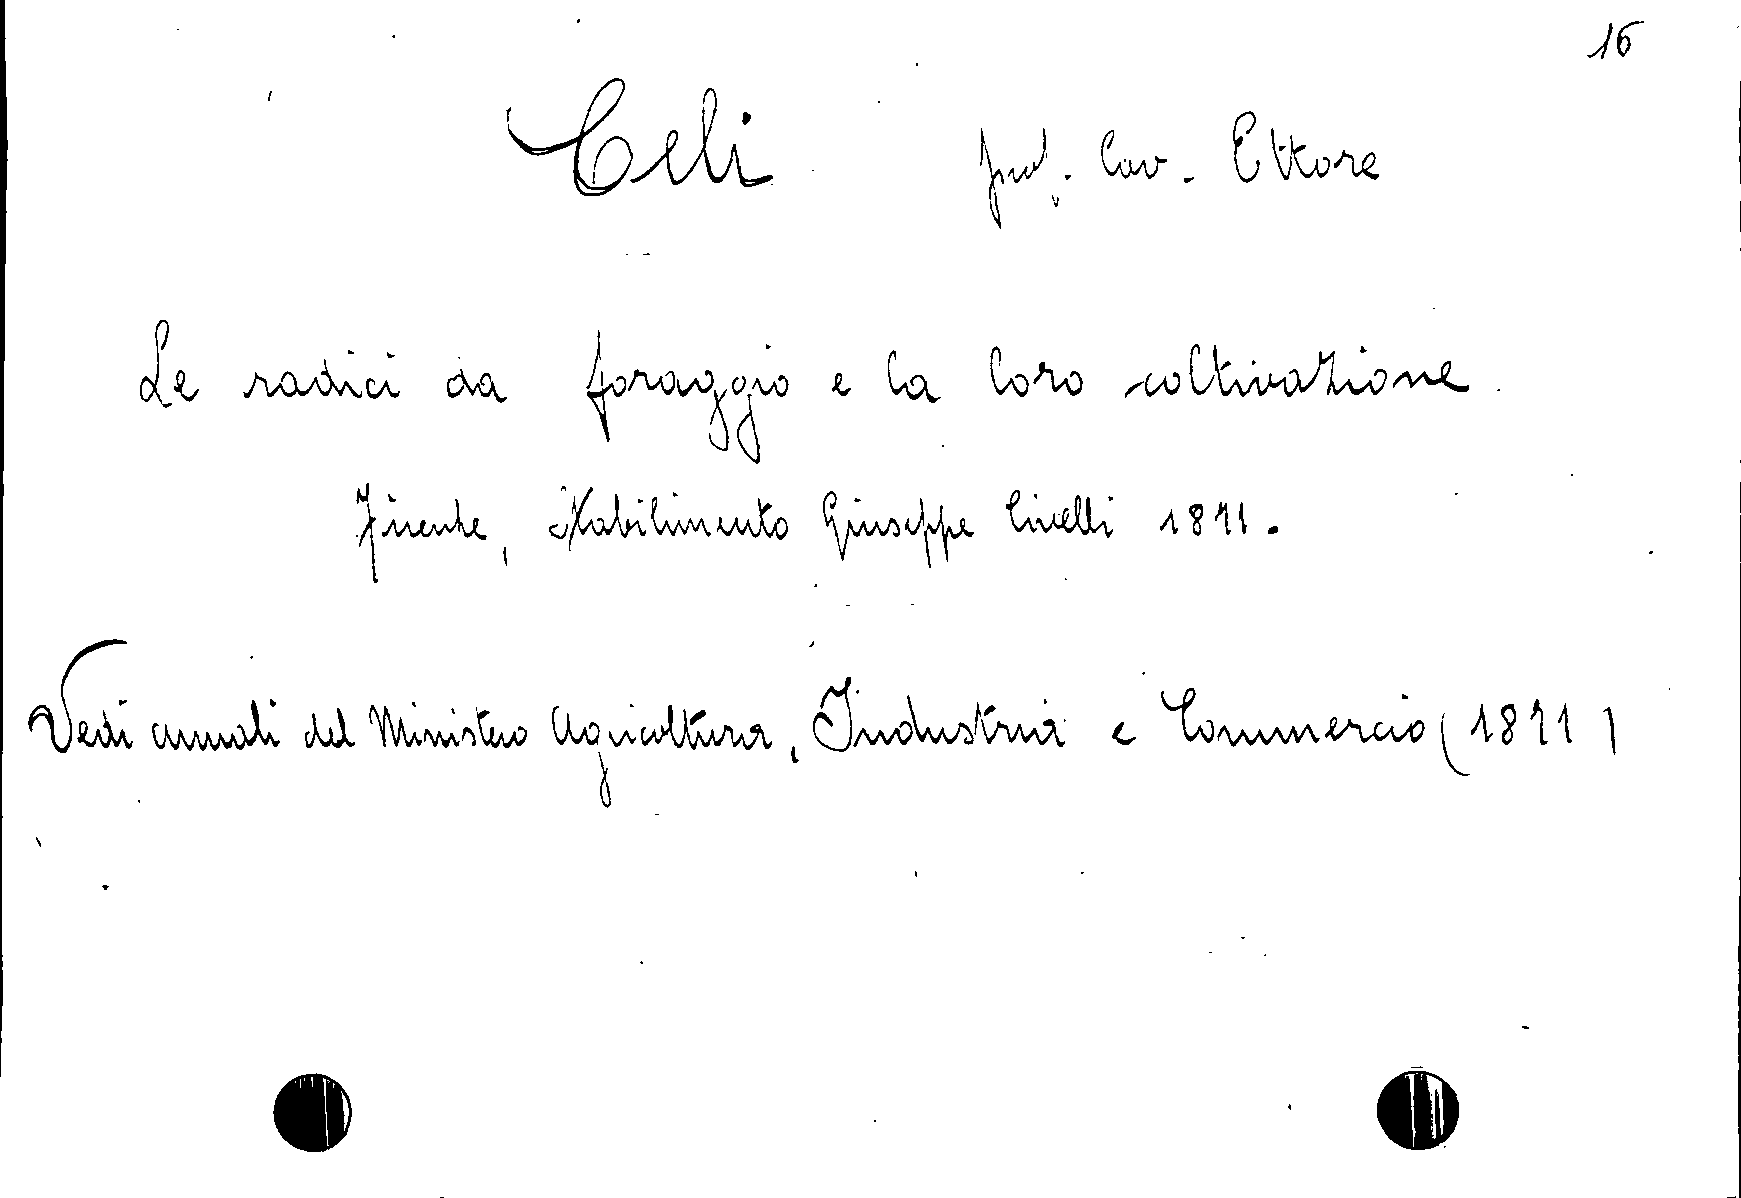 16
Celi prof. Cav. Ettore
Le radici da foraggio e la loro coltivazione.
Firenze, Stabilimento Giuseppe Civelli 1871.
Vedi annali del Ministero Agricoltura, Industria e Commercio (1871)